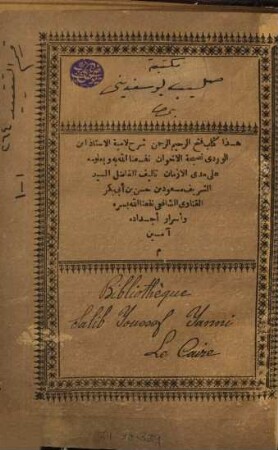 مكتبة
صليب يوسف يني
بمصر
هذا كتاب فتح الرحيم الرحمن شرح لامية الاستاذ ابن
الوردى نصيحة الاخوان نفعنا الله به وبعلومه
على مدى الازمان تأليف الفاضل السيد
الشريف مسعود بن حسن بن أبى بكر
القناوى الشافعى نفعنا الله بسره
وأسرار أجداده
آمين
م
Bibliothèque
Salib Youssof Yanni
Le Caire